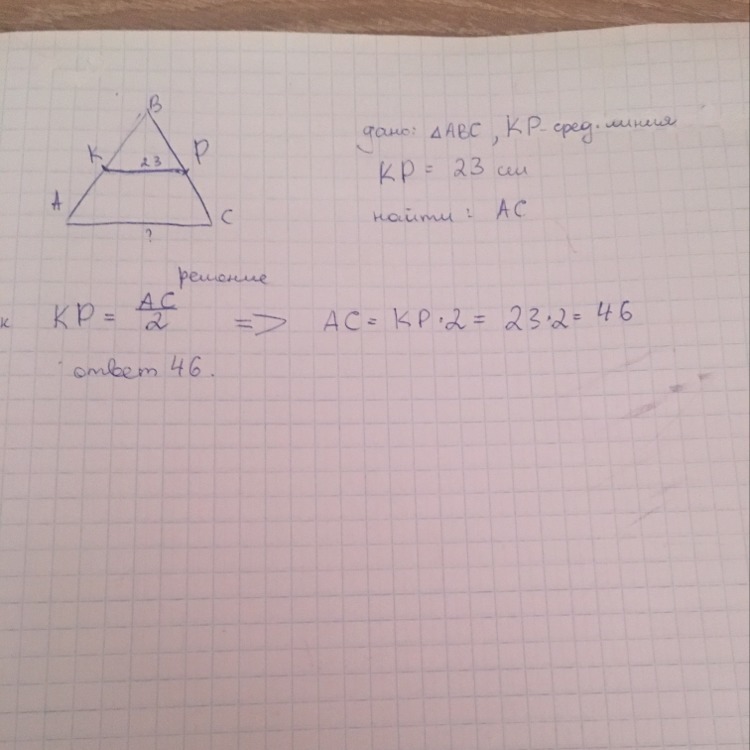 B
K 23 P
A C
?
дано: △ABC, KP - сред. линия
KP = 23 см
найти: AC
решение
к KP = AC/2 => AC = KP·2 = 23·2 = 46
ответ 46.